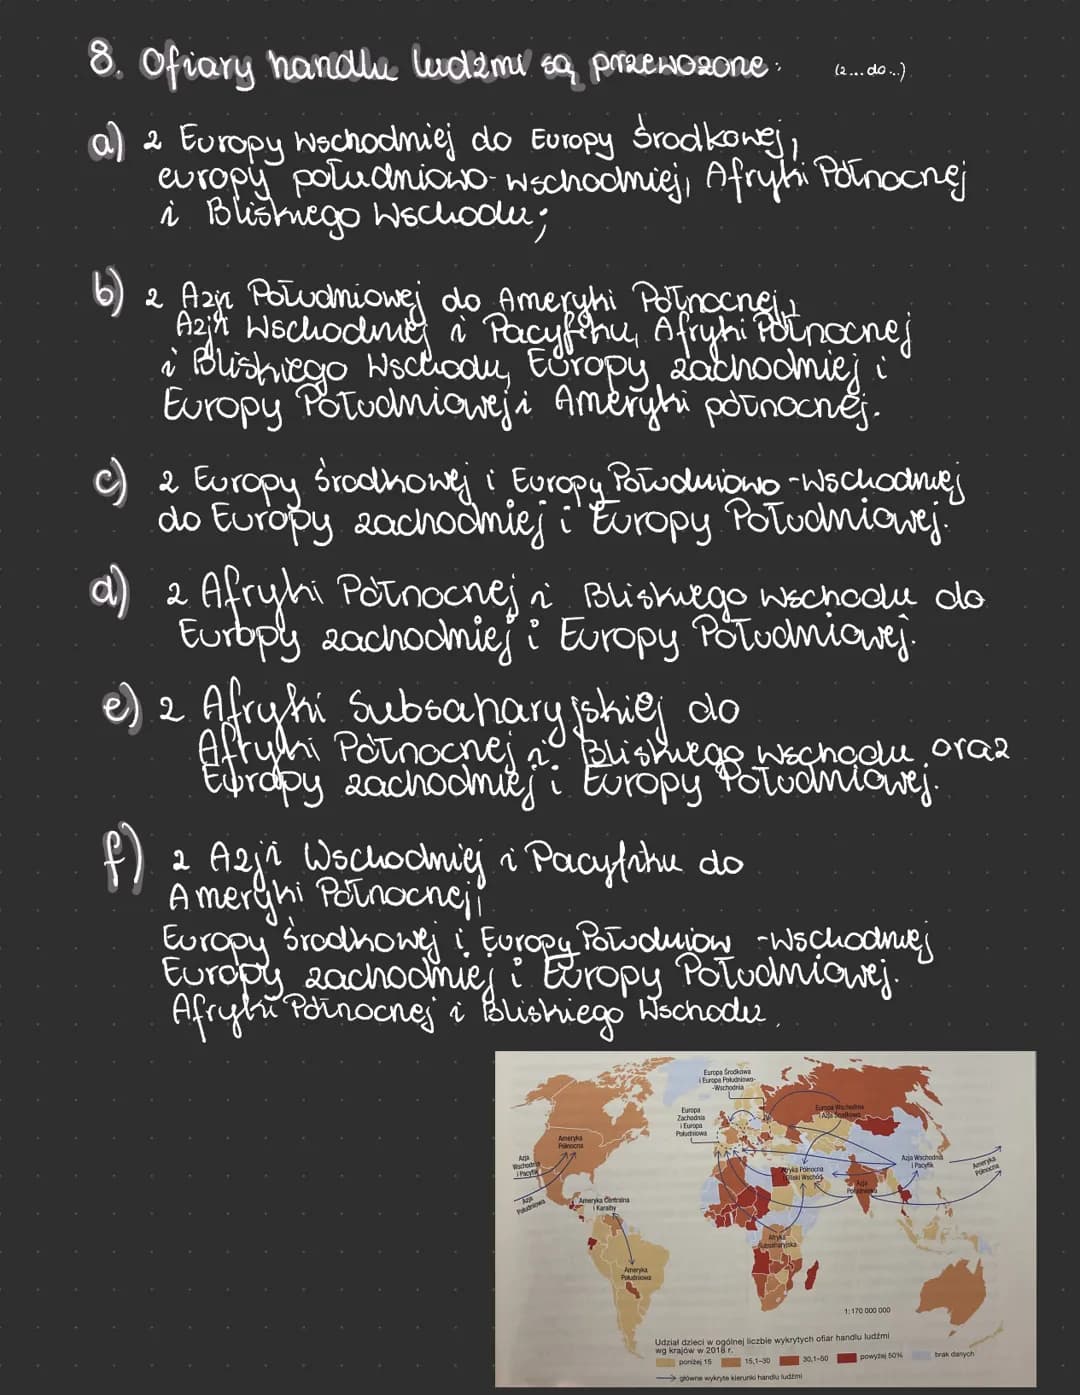 8. Ofiary handlu ludźmi są przewożone: (z...do...)
a) z Europy Wschodniej do Europy Środkowej,
europy południowo-wschodniej, Afryki Północnej
i Bliskiego Wschodu;
b) z Azji Południowej do Ameryki Północnej,
Azji Wschodniej i Pacyfiku, Afryki Północnej
i Bliskiego Wschodu, Europy zachodniej i
Europy Południowej i Ameryki północnej.
c) z Europy Środkowej i Europy Południowo-Wschodniej
do Europy zachodniej i Europy Południowej.
d) z Afryki Północnej i Bliskiego Wschodu do
Europy zachodniej i Europy Południowej.
e) z Afryki Subsaharyjskiej do
Afryki Północnej i Bliskiego Wschodu oraz
Europy zachodniej i Europy Południowej.
f) z Azji Wschodniej i Pacyfiku do
Ameryki Północnej,
Europy Środkowej i Europy Południow -Wschodniej
Europy zachodniej i Europy Południowej.
Afryki Północnej i Bliskiego Wschodu.
Europa Środkowa
i Europa Południowo-
-Wschodnia
Europa
Zachodnia
i Europa
Południowa
Europa Wschodnia
i Azja Środkowa
Ameryka
Północna
Azja
Wschodnia
i Pacyfik
Azja
Południowa
Ameryka Centralna
i Karaiby
Ameryka
Południowa
Afryka Północna
i Bliski Wschód
Afryka
Subsaharyjska
Azja
Południowa
Azja Wschodnia
i Pacyfik
Ameryka
Północna
1:170 000 000
Udział dzieci w ogólnej liczbie wykrytych ofiar handlu ludźmi
wg krajów w 2018 r.
poniżej 15 15,1–30 30,1–50 powyżej 50% brak danych
główne wykryte kierunki handlu ludźmi